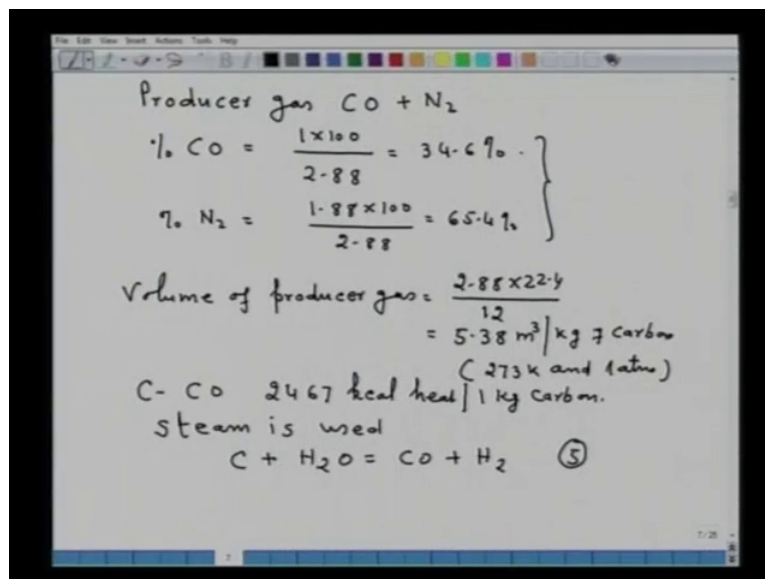 File Edit View Insert Actions Tools Help
Producer gas CO + N2
% CO = 1×100 / 2.88 = 34.6% .
% N2 = 1.88×100 / 2.88 = 65.4%
Volume of producer gas = 2.88×22.4 / 12
= 5.38 m³/kg of carbon
(273K and 1atm)
C- CO 2467 kcal heat/1 kg Carbon.
steam is used
C + H2O = CO + H2 ⑤
7/25
7